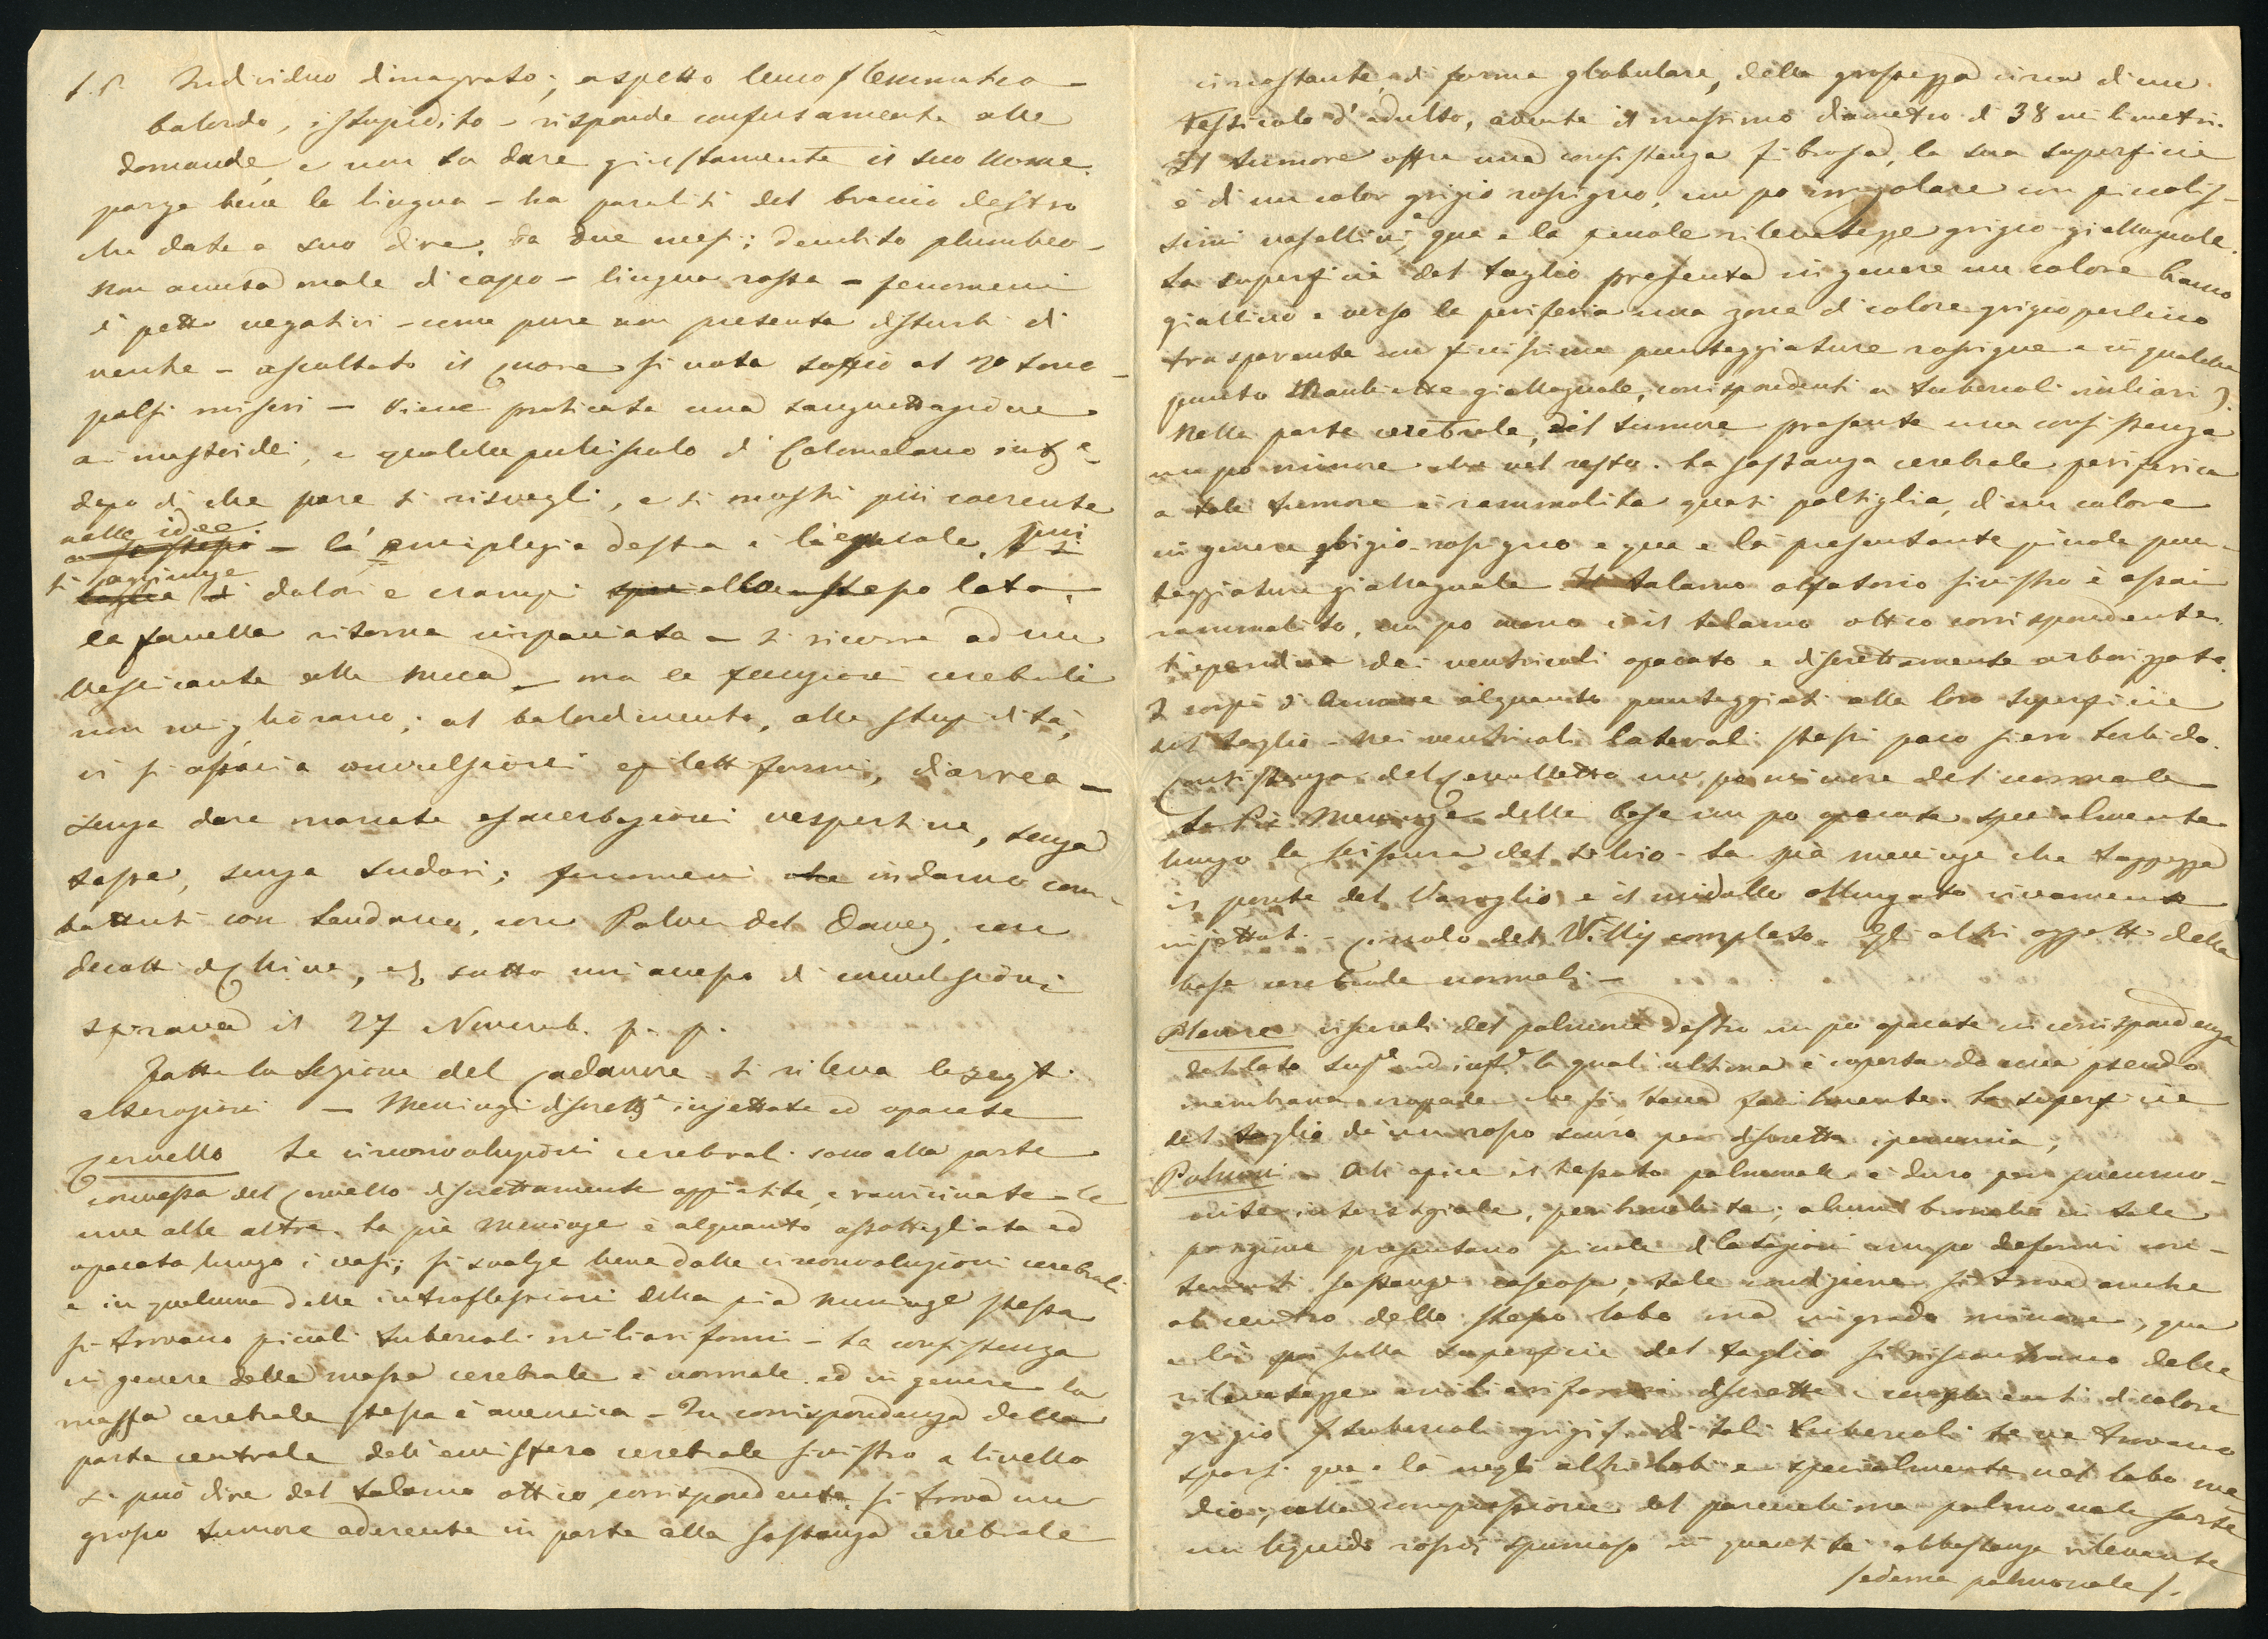 S. P. Individuo dimagrato; aspetto leucoflemmatico -
balordo, istupidito - risponde confusamente alle
domande, e non sa dare giustamente il suo nome.
porge bene la lingua - ha paralisi del braccio destro
che data a suo dire, da due mesi; decubito plumbeo -
non accusa male di capo - lingua rossa - fenomeni
di petto negativi - come pure non presenta disturbi di
ventre - ascoltato il cuore si nota soffio al 2º tono -
polsi miseri - Viene praticata una sanguettagione
ai mastoidei, e qualche di Calomelano
dopo di che pare si risvegli, e si mostri più coerente
nelle idee
a se stesso - la emiplegia destra è uguale, più
si aggiunge
di dolori e crampi allo stesso lato.
la favella ritorna impacciata - si ricorre ad un
vessicante alla nuca - ma le funzioni cerebrali
non migliorano; al balordimento, alla stupidità,
vi si associa convulsioni epilettiformi, diarrea -
senza dare marcate esacerbazioni vespertine, senza
tosse, senza sudori; fenomeni che indarno com-
battuti con Laudano, con Polveri del Dower, con
decotti di China, e sotto un accesso di convulsioni
spirava il 27 Novemb. p. p.
Fatta la Sezione del Cadavere si rileva le segti
alterazioni - Meningi discrettte iniettate ed opacate
Cervello Le circonvoluzioni cerebrali sono alla parte
convessa del Cervello discrettamente appiatite, e ravvicinate le
une alle altre. La pia meninge è alquanto assottigliata ed
opacata lungo i vasi; si svolge bene dalle circonvoluzioni cerebrali
e in qualcuna delle introflessioni della pia meninge stessa
si trovano piccoli tubercoli miliariformi - La consistenza
in genere della massa cerebrale è normale ed in genere la
massa cerebrale stessa è anemica - In corrispondenza della
parte centrale dell'emisfero cerebrale sinistro a livello
si può dire del talamo ottico corrispondente si trova un
grosso tumore aderente in parte alla sostanza cerebrale
circostante, di forma globulare, della grossezza circa di un
testicolo d'adulto, avente il massimo diametro di 38 milimetri.
Il tumore offre una consistenza fibrosa, la sua superficie
è di un color grigio rossigno, un po irregolare con piccolis-
simi vasellini, e qua e la piccole rilevatezze grigio-giallognole.
La superficie del taglio presenta in genere un colore bianco
giallino e verso la periferia una zona di colore grigio perlino
trasparente con finissime punteggiature rossigne e in qualche
punto giallognole, corrispondenti a tubercoli miliari).
Nella parte cerebrale, del tumore presenta una consistenza
un po minore che nel resto. La sostanza cerebrale periferica
a tale tumore è rammolita quasi poltiglia, di un colore
in genere grigio-rossigno e qua e la presentante piccole pun-
teggiature giallognole. Il talamo olfatorio sinistro è assai
rammolito, un po meno è il talamo ottico corrispondente.
L'ependima dei ventricoli opacato e discrettamente arborizzato.
I corpi d'Ammone alquanto punteggiati alla loro superficie
del taglio - Nei ventricoli laterali stessi poco siero torbido.
Consistenza del Cervelletto un po minore del normale -
La Pia Meninge della base un po opacata specialmente
lungo la scissura del Silvio - La pia meninge che tappezza
il ponte del Varoglio e il midollo allungato vivamente
injettati - Circolo del Willis completo. Gli altri oggetti della
base cerebrale normali. -
Pleure viscerali del polmone destro un po opacate in corrispondenza
del lobo supe ed infe la quali ultima è coperta da una pseudo
membrana che si facilmente. La superficie
del taglio di un rosso scuro per discretta iperemia,
Polmoni - All'apice il tessuto polmonale è duro per pneumo-
nite interstiziale, ; alcuni bronchi in tale
porzione presentano piccole dilatazioni un po deformi con-
tenenti sostanze caseose; tale condizione si trova anche
al centro dello stesso lobo ma in grado minore, qua
e là poi sulla superficie del taglio si riscontrano delle
rilevatezze miliariformi discrette e confluenti di colore
grigio (tubercoli grigi). Di tali tubercoli se ne trovano
sparsi qua e là negli altri lobi e specialmente nel lobo me-
dio, colla compressione del parenchima polmonale sorte
un liquido rosso spumoso in quantità abbastanza rilevante
(edema polmonale).